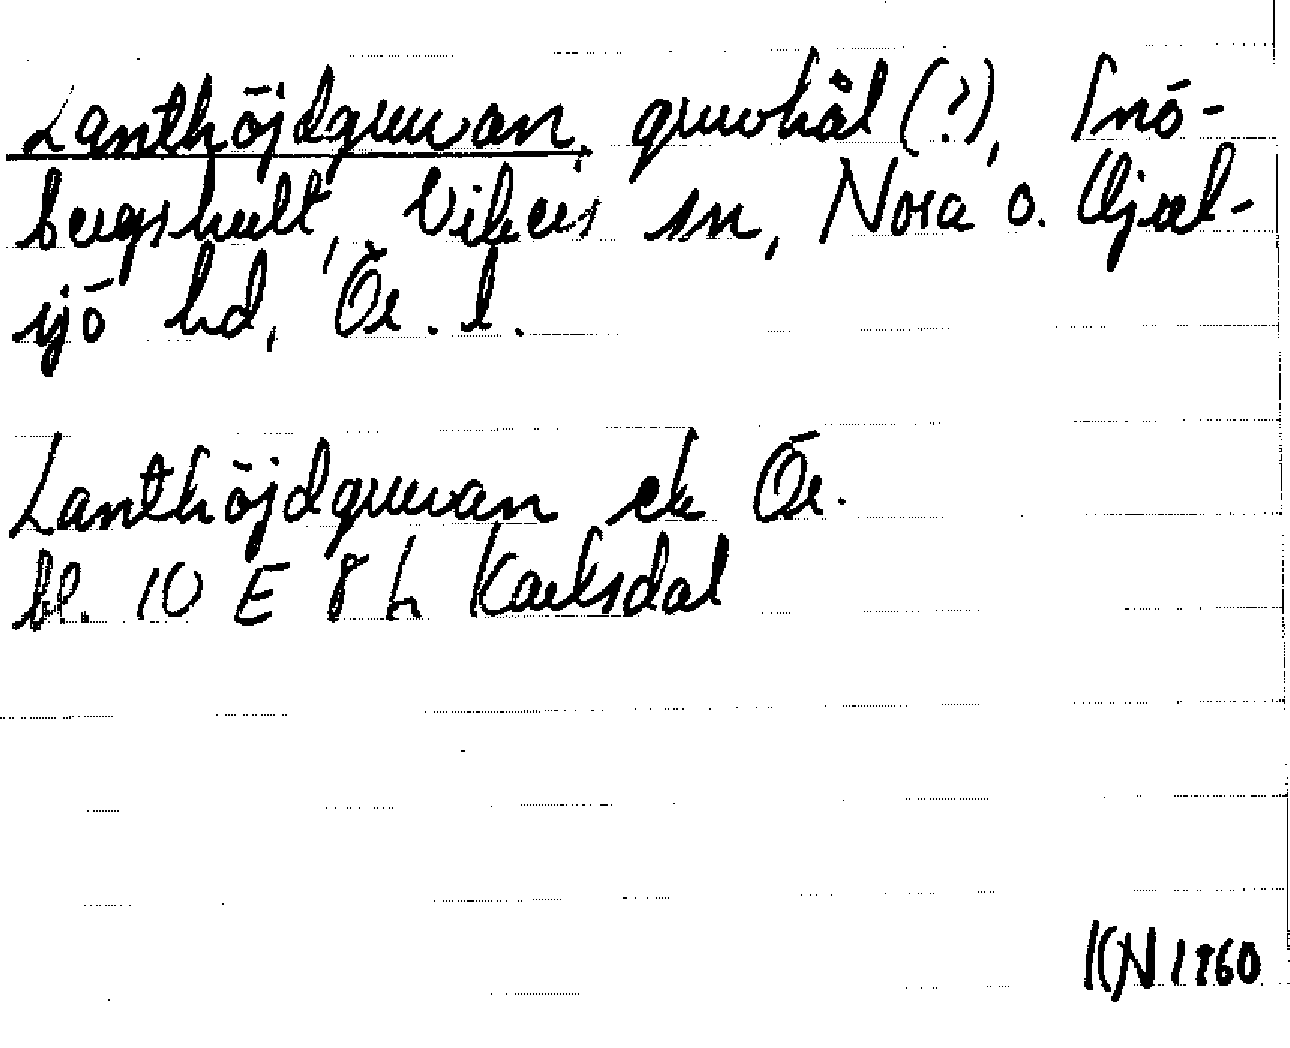 Lanthöjdgruvan, gruvhål (?), Snö-
bergshult, Vikers sn, Nora o. Hjul-
sjö hd, Ör. l.
Lanthöjdgruvan ek Ör.
bl. 10 E 8 h Karlsdal
KN 1960